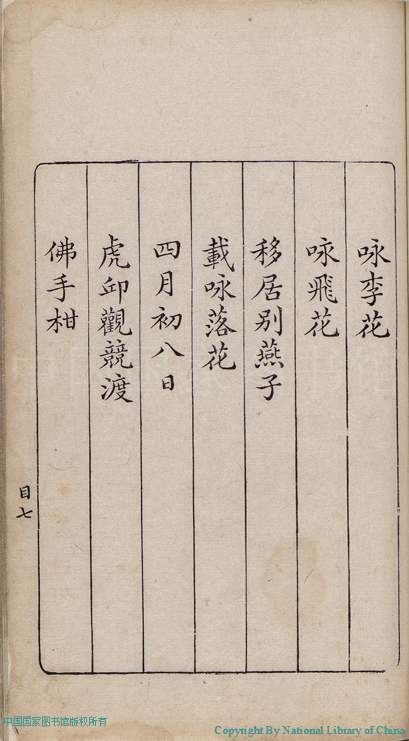 咏李花
咏飛花
移居别燕子
載咏落花
四月初八日
虎邱觀競渡
佛手柑
目七
中国国家图书馆版权所有
Copyright By National Library of China